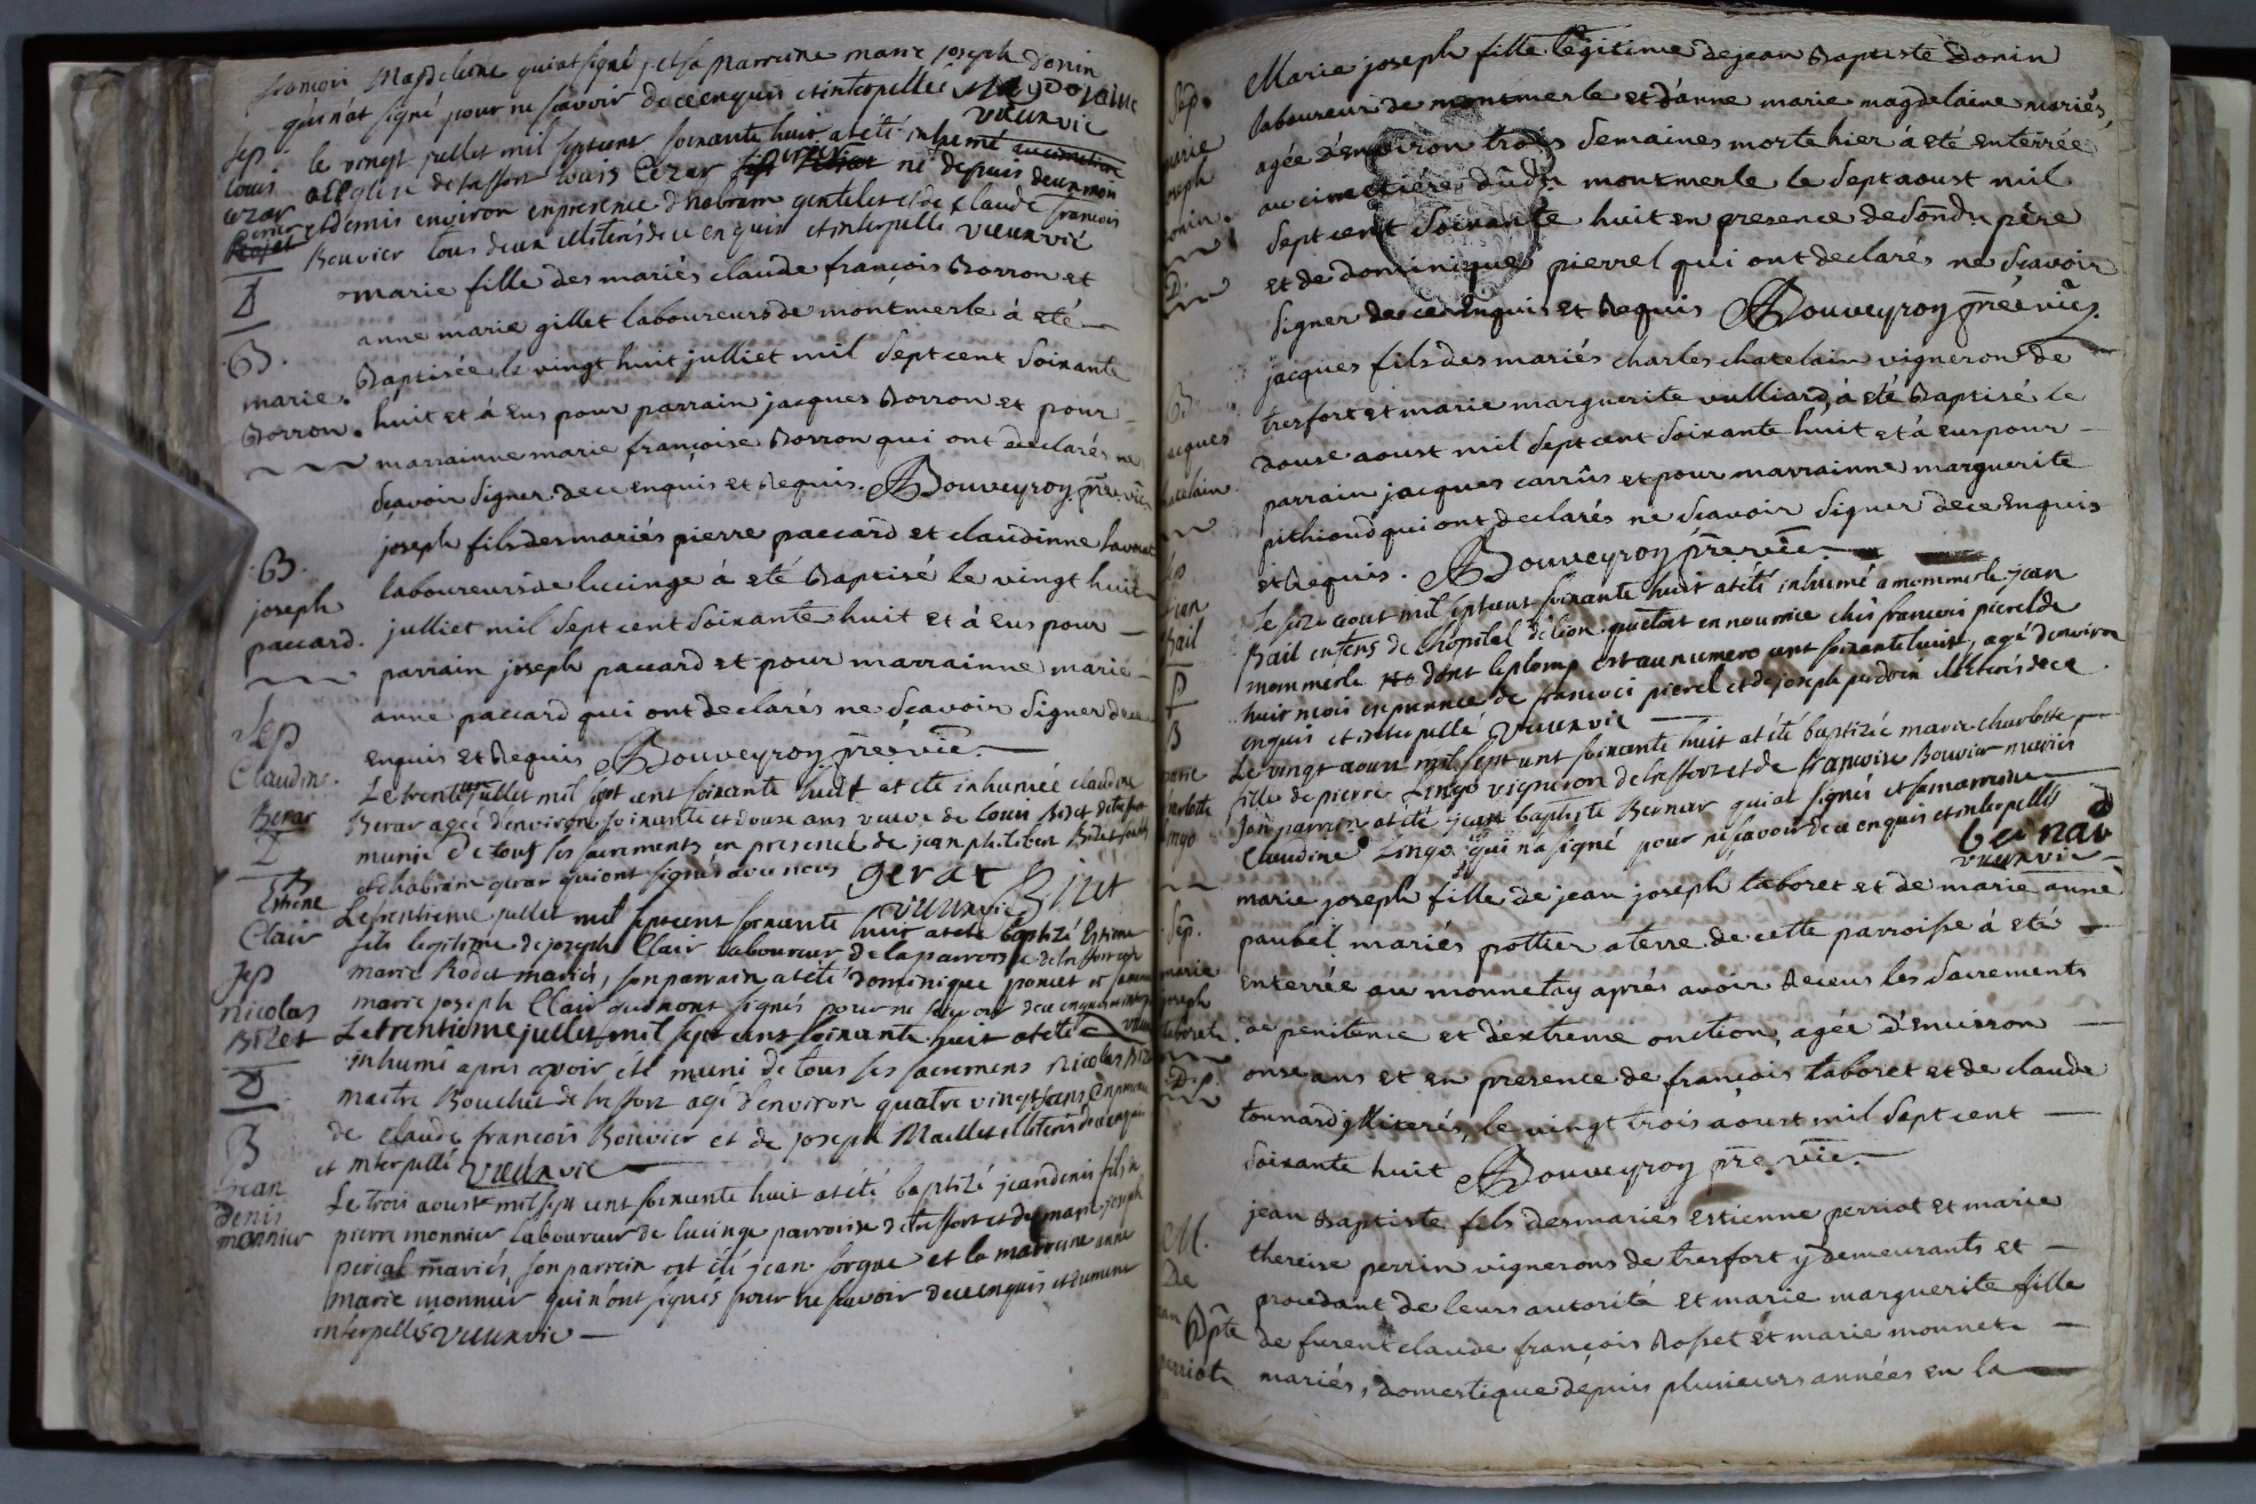 françois Magdeleine qui at signé, et sa marreine marie joseph donin
qui n'at signé pour ne scavoir de ce enquis et interpellée Magdelaine
vieux vic
Sep
louis
cezar
le vingt jullet mil sept cent soixante huit at été inhumé au cimetiere
de l'eglise de tresfort louis Cezar né depuis deux mois
et demis environ en presence d'habram gentelet et de Claude francois
Bouvier tous deux illiterés de ce enquis et interpellé vieux vic
B.
marie
Borron.
marie fille des mariés claude françois Borron et
anne marie gillet laboureurs de montmerle à eté
Baptisée le vingt huit julliet mil sept cent soixante
huit et à eus pour parrain jacques Borron et pour
marrainne marie françoise Borron qui ont declarés ne
sçavoir signer de ce enquis et Requis. Bouveyron prê vic
B.
joseph
paccard.
joseph fils des mariés pierre paccard et claudinne
laboureurs de lucinge à eté Baptisé le vingt huit
julliet mil sept cent soixante huit et à eus pour
parrain joseph paccard et pour marrainne marie
anne paccard qui ont declarés ne sçavoir signer de ce
enquis et Requis Bouveyron prê vic.
Sep
Claudine
Berar
Le trente jullet mil sept cent soixante huit at eté inhumée claudine
Berar agée d'environ soixante et douse ans veuve de louis Bizet de tresfort
munie de tous ses sacrements en presence de jean philibert Bizet
et habram gerar qui ont signés avec nous gerar Bizet
vieux vic
B
Estiene
Clair
Le trentieme jullet mil sept cent soixante huit at eté baptizé Estienne
fils legitime de joseph Clair laboureur de la parroisse de tresfort et de
marie Rodet mariés, son parrain at été dominique poncet et sa marreine
marie joseph Clair qui n'ont signés pour ne scavoir de ce enquis et interpellés
Sep
nicolas
Bizet
Le trentieme jullet mil sept cent soixante huit at eté
inhumé apres avoir été muni de tous ses sacremens nicolas Bizet
maitre Boucher de tresfort agé d'environ quatre vingt ans en presence
de claude francois Bouvier et de joseph Maillet illiterés de ce enquis
et interpellé vieux vic
B
jean
denis
monnier
Le trois aoust mil sept cent soixante huit at été baptizé jean denis fils de
pierre monnier laboureur de lucinge parroisse de tresfort et de marie joseph
mariés, son parrein at été jean sorgue et la marreine anne
marie monnier qui n'ont signés pour ne scavoir de ce enquis et dument
interpellés vieux vic
Sep.
marie
joseph
donin.
Marie joseph fille legitime de jean Baptiste Donin
laboureur de montmerle et d'anne marie magdelaine mariés,
agée d'environ trois semaines morte hier à eté enterrée
au cimettiere dudt montmerle le sept aoust mil
sept cent soixante huit en presence de sondt père
et de dominique pierrel qui ont declarés ne sçavoir
signer de ce Enquis et Requis Bouveyron prê vic.
B
jacques
chatelain
jacques fils des mariés charles chatelain vigneron de
tresfort et marie marguerite vulliard, à eté Baptisé le
douse aoust mil sept cent soixante huit et à eus pour
parrain jacques carrûs et pour marrainne marguerite
pithioud qui ont declarés ne sçavoir signer de ce Enquis
et Requis. Bouveyron prê vic.
Sep
jean
Bail
Le seze aout mil sept cent soixante huit at été inhumé a mommerle jean
Bail enfens de l'hopital de lion qu'etoit en nourrice chés francois pierel de
mommerle dont le plomp est au numero cent soixante huit, agé d'environ
huit mois en presence de francoi pierel et de joseph perdrix illiterés de ce
enquis et interpellé vieux vic
B
marie
charlotte
lingo
Le vingt aoust mil sept cent soixante huit at été baptizée marie charlotte
fille de pierre Lingo vigneron de tresfort et de françoise Bouvier mariés
son parrein at été jean baptiste Bernar qui at signé et sa marreine
Claudine Lingo qui n'a signé pour ne scavoir de ce enquis et interpellés
bernad
vieux vic
Sep.
marie
joseph
taboret
marie joseph fille de jean joseph taboret et de marie anne
paubel mariés pottier a terre de cette parroisse à etés
enterrée au monnetay aprés avoir Receus les sacrements
de penitence et d'extreme onction, agée d'environ
onse ans et en presence de françois taboret et de claude
tonnard illiterés, le vingt trois aoust mil sept cent
soixante huit Bouveyron prê vic.
M.
De
jean Bpte
perriat
jean Baptiste fils des mariés estienne perriat et marie
thereise perrin vignerons de tresfort y demeurants et
procedant de leurs autorité et marie marguerite fille
de furent claude françois Rosset et marie monnet
mariés, domestique depuis plusieurs années en la